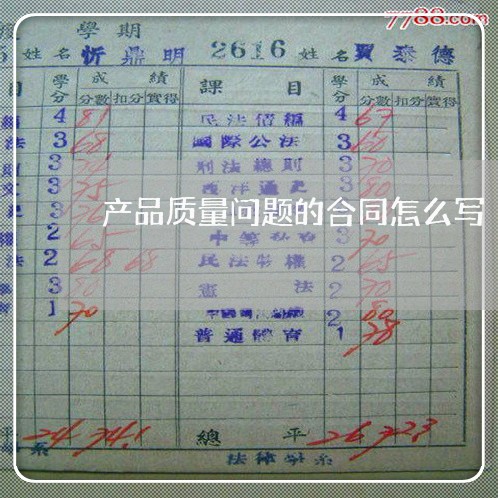 7788.com
學期
姓名 忻鼎明 2616 姓名 賈泰德
目 學分 成績 課目 學分 成績
分數 扣分 實得 分數 扣分 實得
4 81 民法債編 4 67
法 3 68 國際公法 3 60
3 刑法總則 3 70
3 75 西洋通史 3 80
產品质量问题的合同怎么写
2 65 3 70
法 2 68 68 民法物權 2 65
3 80 憲法 2 70
1 70 2 80
普通體育 1 78
平 24 74.1 總平 26 72.3
系 法律學系